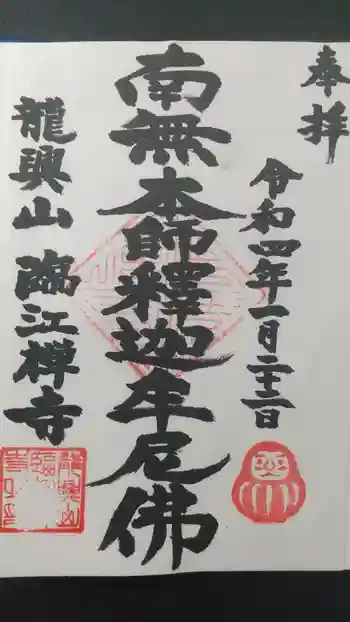 奉拝
令和四年一月二十二日
南無本師釋迦牟尼佛
龍興山 臨江禅寺